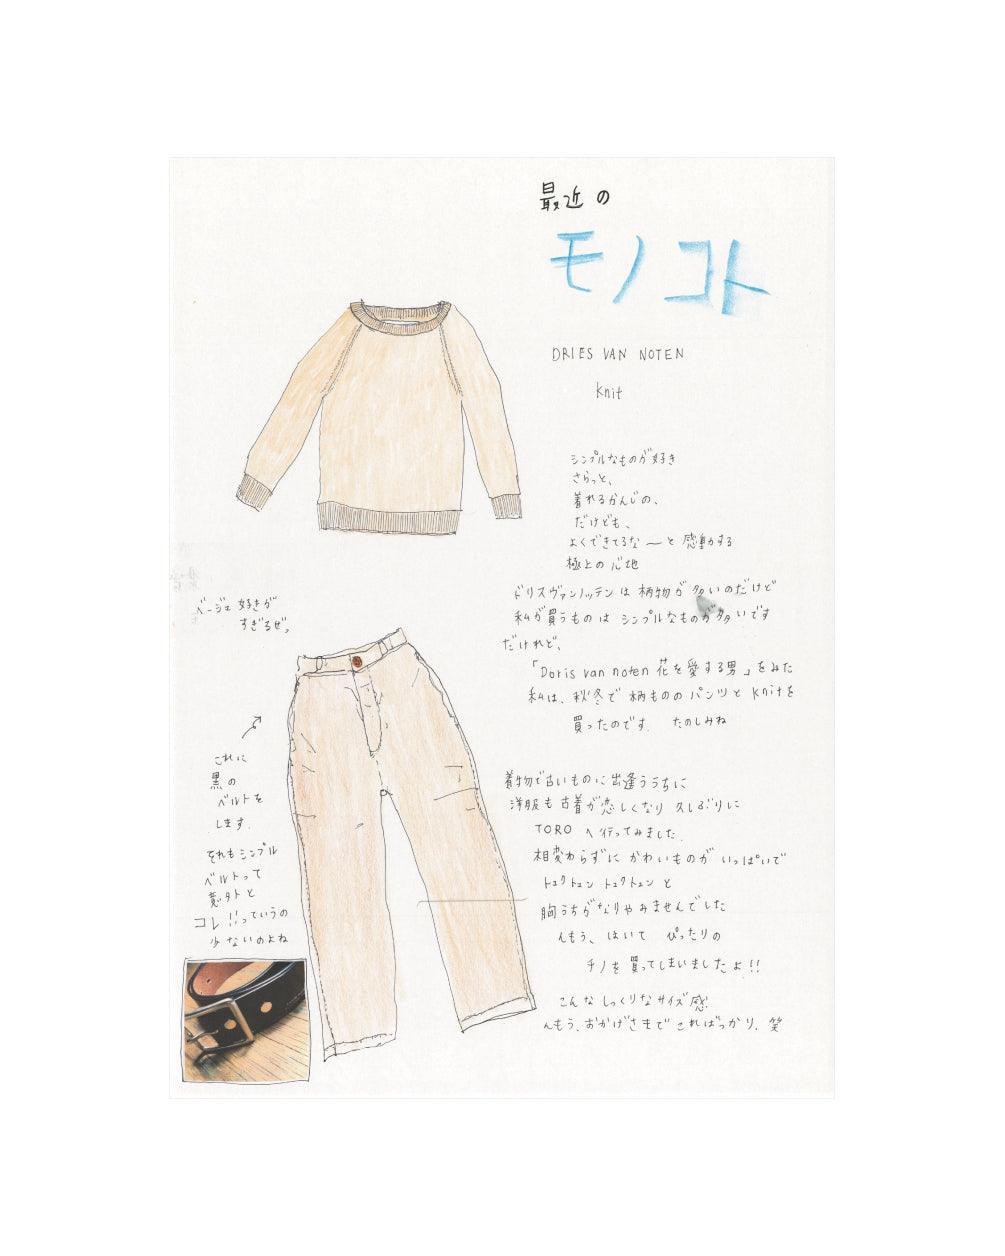 最近の
モノコト
DRIES VAN NOTEN
knit
シンプルなものが好き
さらっと、
着れるかんじの、
だけども、
よくできてるな〜と感動する
極上の心地
ドリスヴァンノッテンは柄物が多いのだけど
私が買うものはシンプルなものが多いです
だけれど、
「Doris van noten 花を愛する男」をみた
私は、秋冬で柄もののパンツとknitを
買ったのです. たのしみね
着物で古いものに出逢ううちに
洋服も古着が恋しくなり久しぶりに
TOROへ行ってみました.
相変わらずにかわいものがいっぱいで
トュクトュントュクトュンと
胸うちがなりやみませんでした
んもう、はいて ぴったりの
チノを買ってしまいましたよ!!
こんなしっくりなサイズ感!
んもう、おかげさまでこればっかり. 笑
ベージュ好きが
すぎるぜ。
これに
黒の
ベルトを
します.
それもシンプル
ベルトって
意外と
コレ!!っていうの
少ないのよね